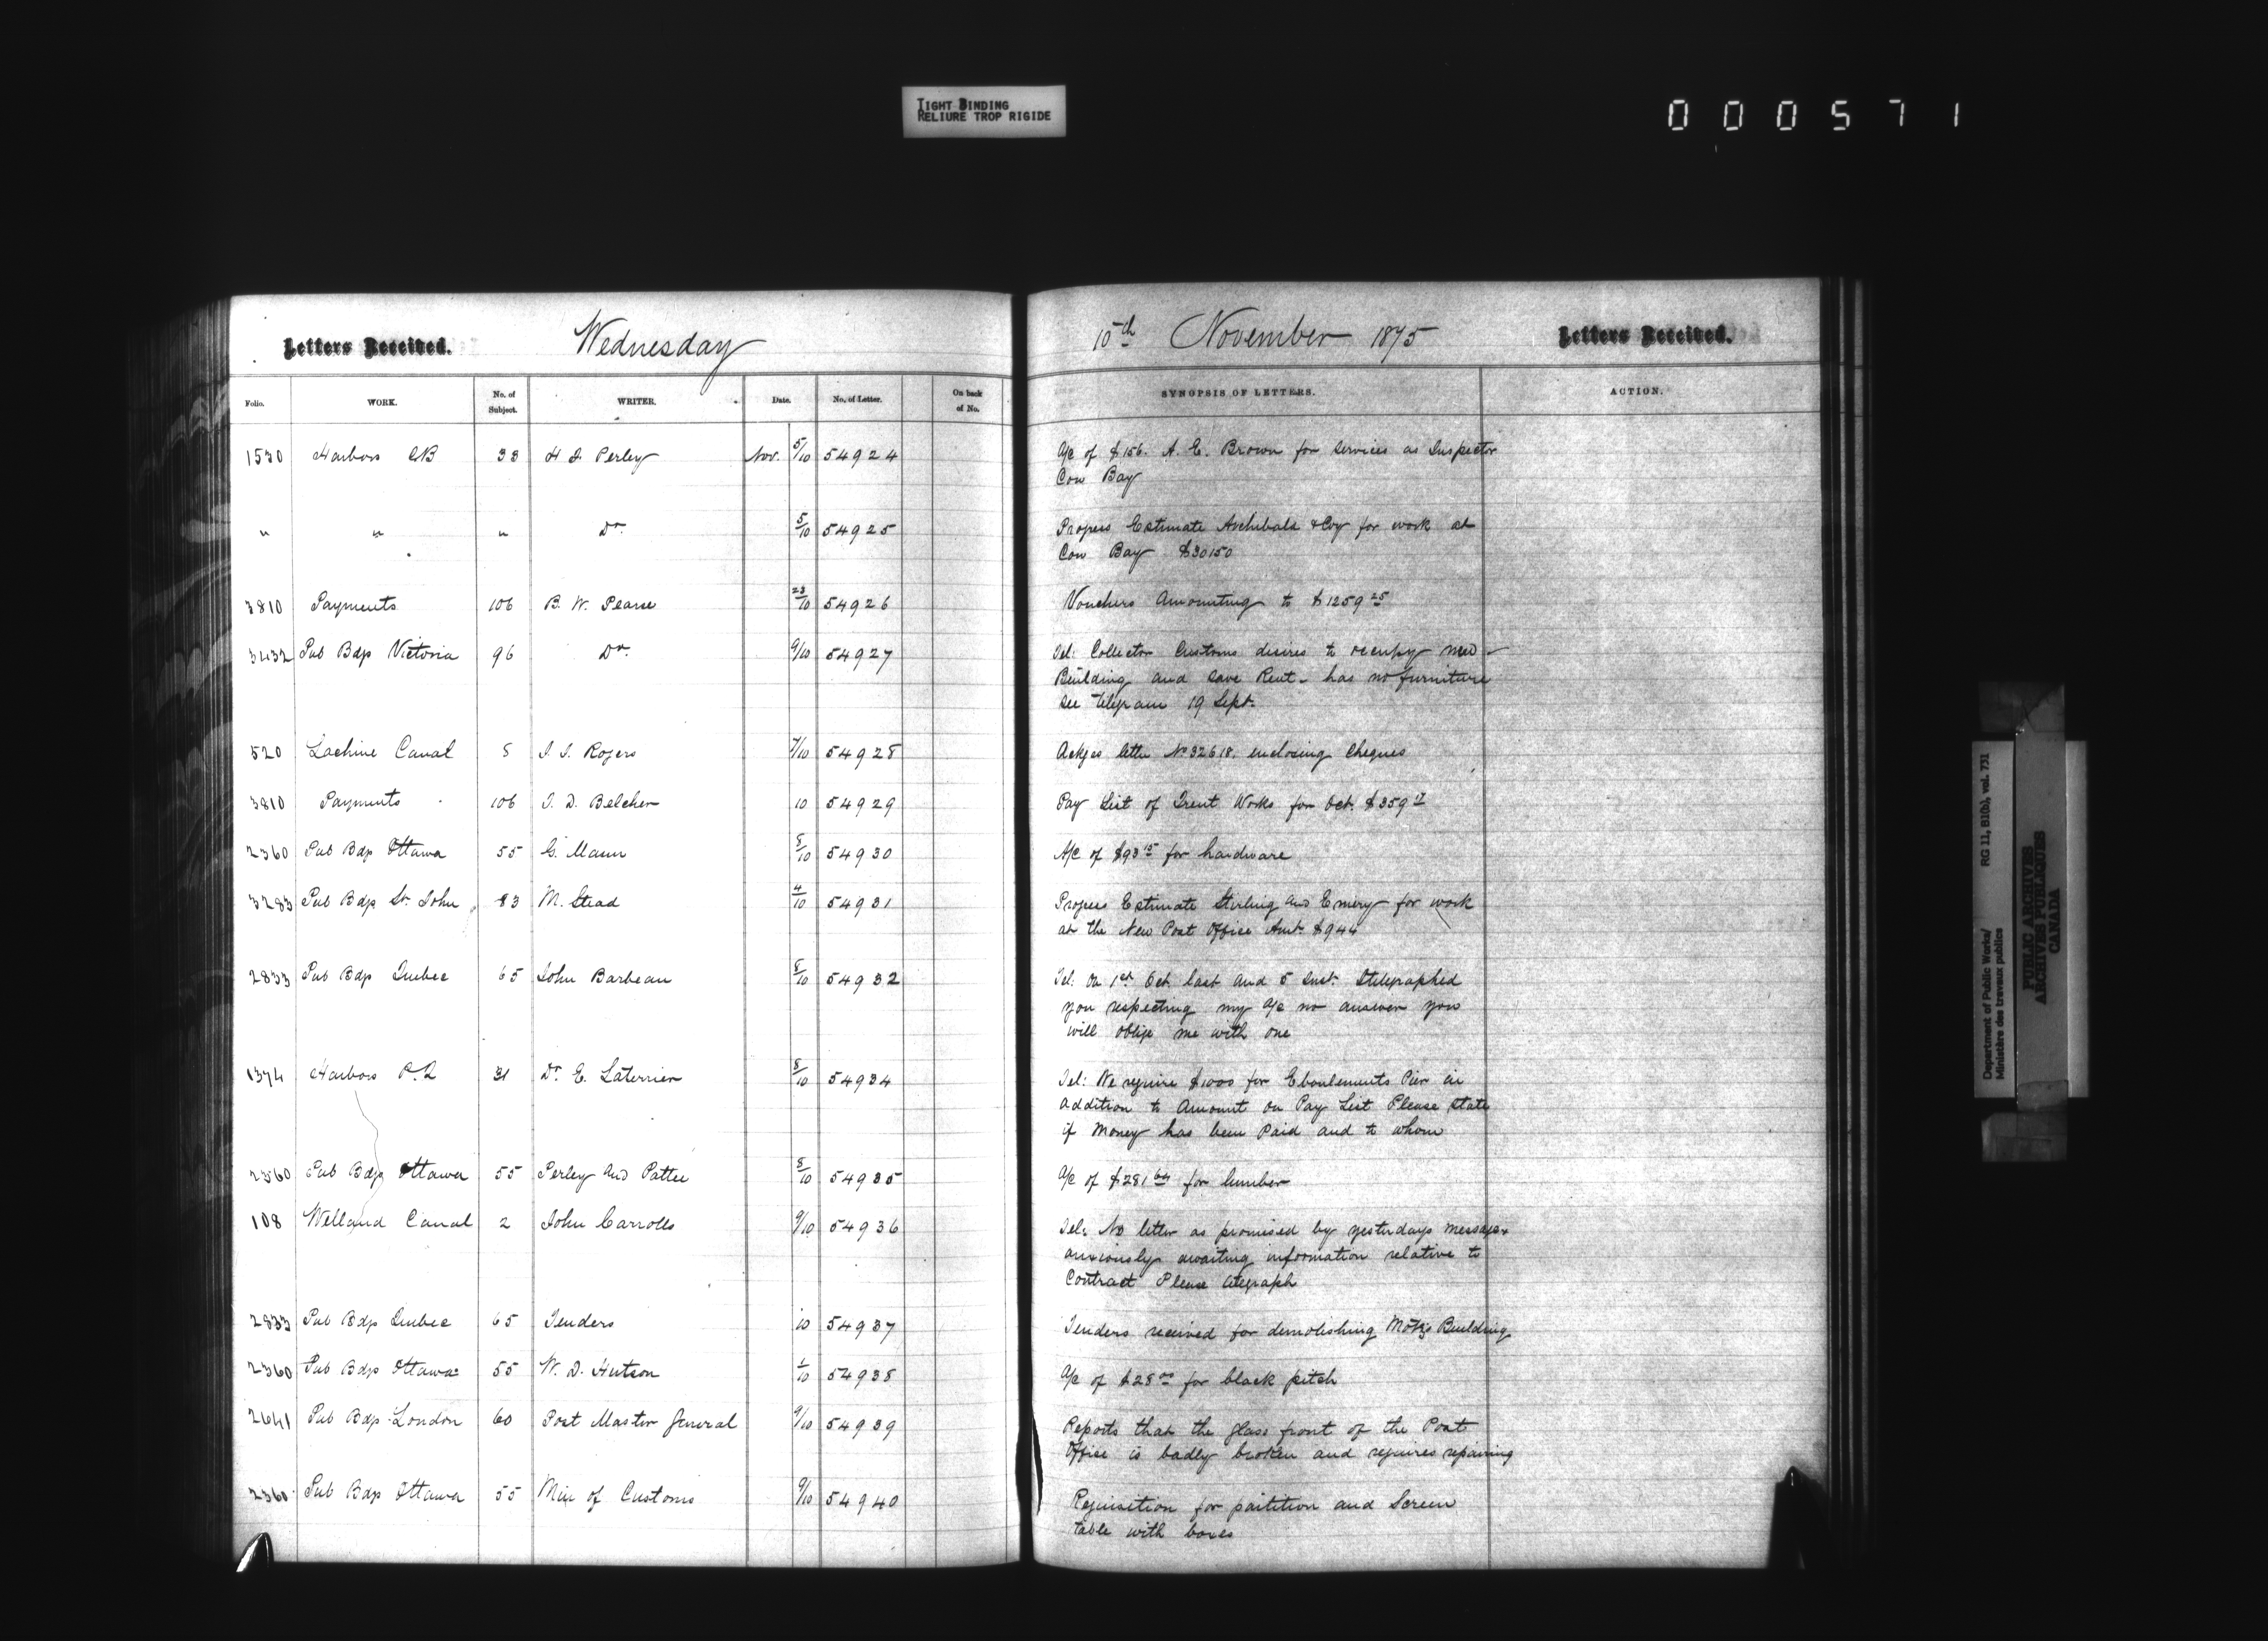 TIGHT BINDING
RELIURE TROP RIGIDE
000571
Letters Received. Wednesday 10th November 1875 Letters Received.
Folio. WORK. No. of Subject. WRITER. Date. No. of Letter. On back of No. SYNOPSIS OF LETTERS. ACTION.
1530 Harbors 33 H F Perley Nov. 5/10 54924 A/c of $156. A. E. Brown for services as Inspector
Cow Bay
" " " Do. 5/10 54925 Progress Estimate Archibald & Coy for work at
Cow Bay $30150
3810 Payments 106 B. W. Pearse 23/10 54926 Vouchers Amounting to $1259 25
3432 Pub Bdgs Victoria 96 Do. 9/10 54927 Tel: Collector Customs desires to occupy new
Building and save Rent - has no furniture
see telegram 19 Sept.
520 Lachine Canal 8 Rogers 7/10 54928 Ackges letter No 32618. enclosing Cheques
3810 Payments 106 T. D. Belcher 10 54929 Pay List of Trent Works for Oct. $359 17
2360 Pub Bdgs Ottawa 55 G. Mason 8/10 54930 A/c of $93 15 for hardware
3283 Pub Bdgs St. John 83 M. Stead 4/10 54931 Progress Estimate Stirling and Emery for work
at the New Post Office Amt. $944
2833 Pub Bdgs Quebec 65 John Barbeau 8/10 54932 Tel: On 1st Oct last and 5 Inst. I telegraphed
you respecting my A/c no answer you
will oblige me with one
1374 Harbors P.Q 31 Dr. E. Laterrier 8/10 54934 Tel: We require $1000 for Eboulements Pier in
addition to Amount on Pay List Please state
if Money has been Paid and to whom
2360 Pub Bdgs Ottawa 55 Perley and Pattee 8/10 54935 A/c of $281 64 for lumber
108 Welland Canal 2 John Carrolls 9/10 54936 Tel: No letter as promised by yesterdays message
anxiously awaiting information relative to
Contract Please telegraph
2833 Pub Bdgs Quebec 65 Tenders 10 54937 Tenders received for demolishing Motzs Building
2360 Pub Bdgs Ottawa 55 W. D. Hutson 1/10 54938 A/c of $28 00 for black pitch
2641 Pub Bdgs London 60 Post Master General 9/10 54939 Reports that the glass front of the Post
Office is badly broken and requires repairing
2360 Pub Bdgs Ottawa 55 Min of Customs 9/10 54940 Requisition for partition and Screen
table with boxes
Department of Public Works/ RG 11, B1(b), vol. 731
Ministère des travaux publics
PUBLIC ARCHIVES
ARCHIVES PUBLIQUES
CANADA